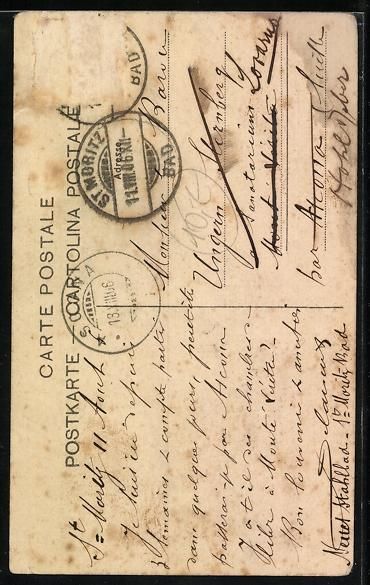 CARTE POSTALE
POSTKARTE — CARTOLINA POSTALE
BAD
ST MORITZ
11.VIII.06.XII-
BAD
18.VIII.06
Adresse
Monsieur
Baron
Ungern Sternberg
Sanatorium
Locarno
Monte Verita
par Ascona Suisse
St Moritz 11 Août
Je suis ici depuis
2 semaines & compte partir
dans quelques jours, peut être
passerai je par Ascona
Y a t'il des chambres
libre à Monte Verita?
Bon souvenir & amitiés
St Moritz Bad